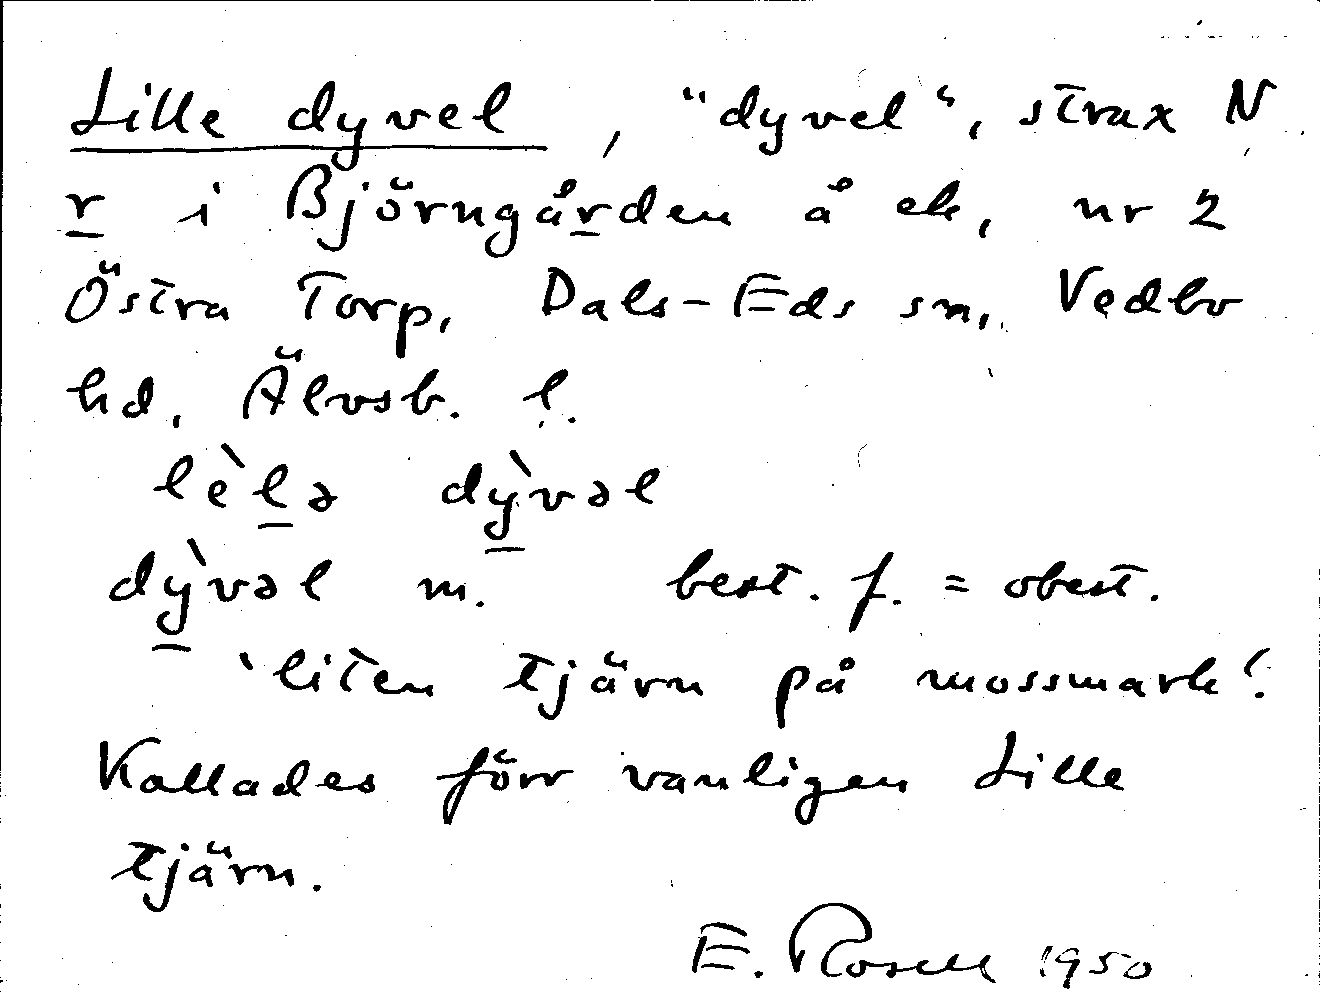 Lille dyvel, "dyvel", strax N
r i Björngården å ek, nr 2
Östra Torp, Dals-Eds sn, Vedbo
hd, Älvsb. l.
lèlə dỳvəl
dỳvəl m. best. f. = obest.
'liten tjärn på mossmark'.
Kallades förr vanligen Lille
tjärn.
E. Rosell 1950